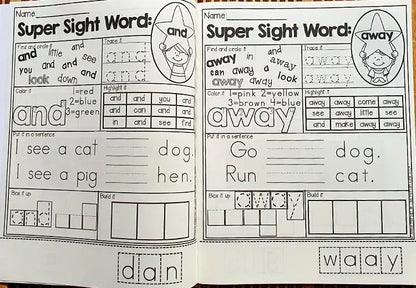 Name:
Super Sight Word:
and
Find and circle it
and little and
and see
you and and
look down and
Trace it
and
and
Color it
1=red
2=blue
3=green
and
Highlight it
and and you and
and can and and
in and see find
Put it in a sentence
I see a cat dog.
I see a pig hen.
Box it up
and
Build it
d a n
Name:
Super Sight Word:
away
Find and circle it
away in and
away
can away a
look
away away
Trace it
away
away
Color it
1=pink 2=yellow
3=brown 4=blue
away
Highlight it
away away come away
see away little see
and make away away
Put it in a sentence
Go dog.
Run cat.
Box it up
away
Build it
w a a y